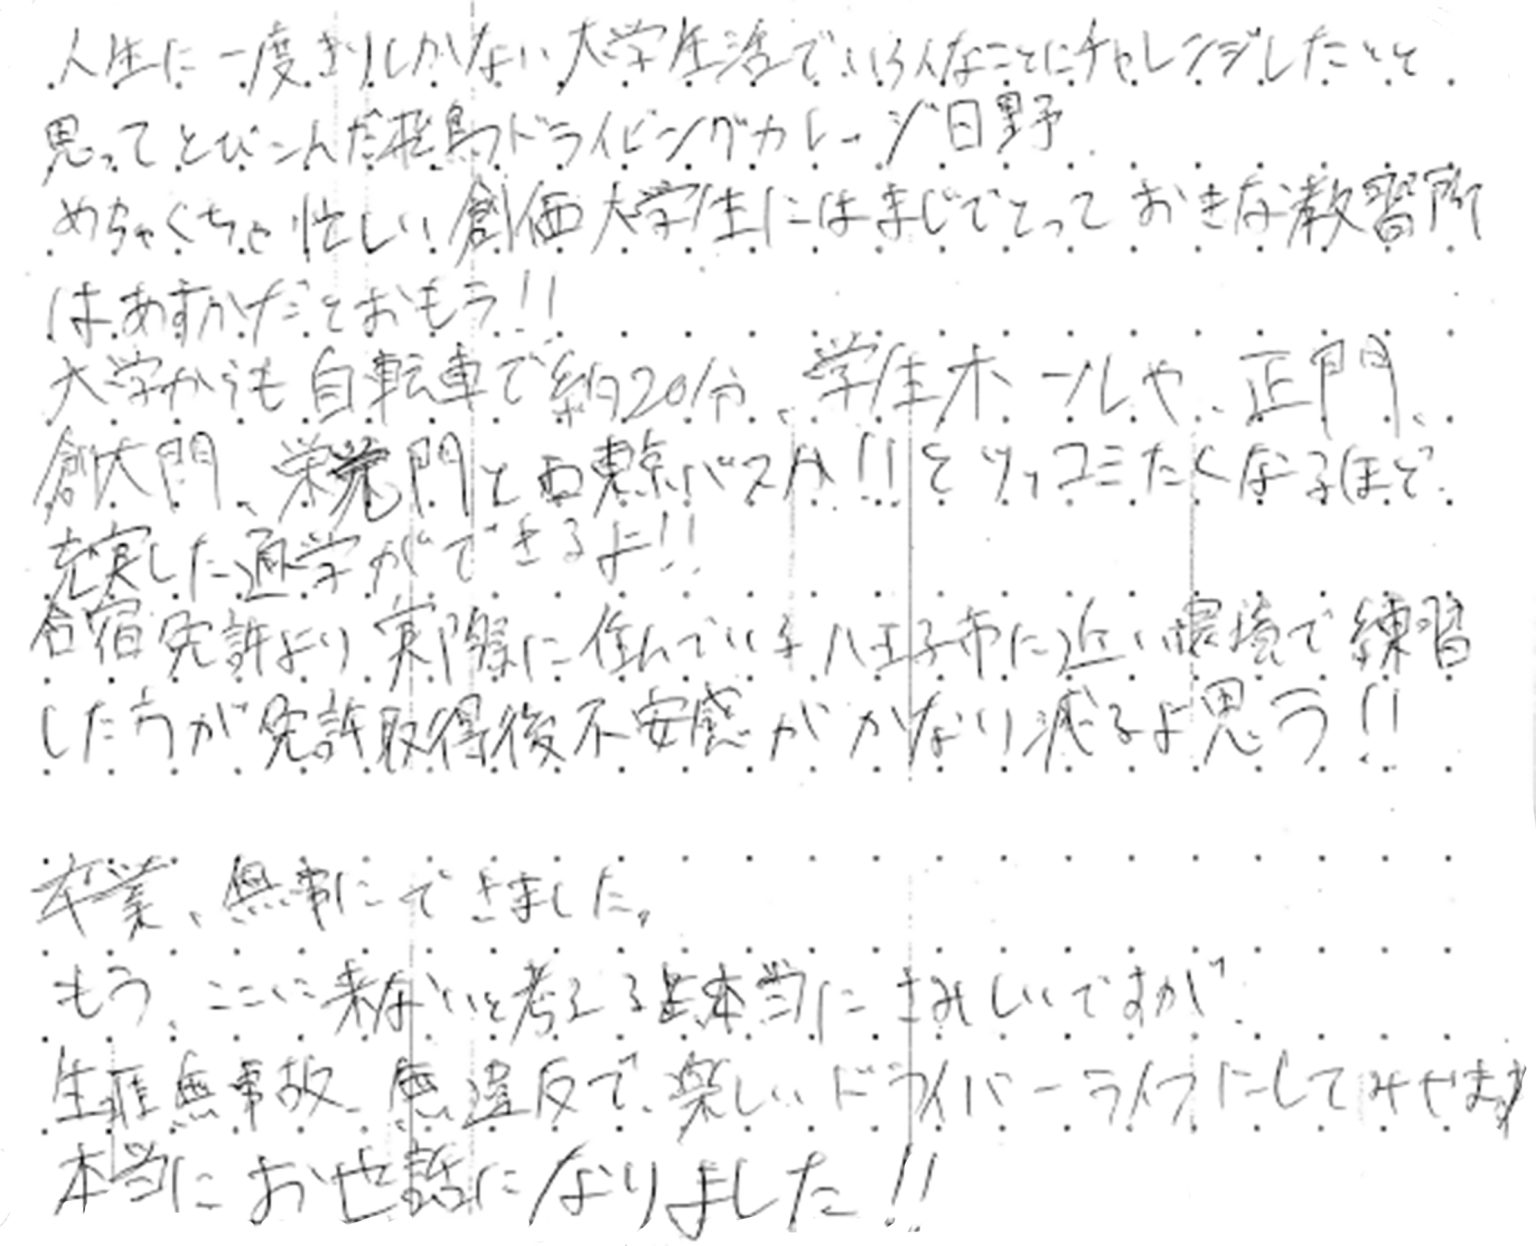 人生に一度きりしかない大学生活でいろんなことにチャレンジしたいと
思ってとびこんだ飛鳥ドライビングカレッジ日野
めちゃくちゃ忙しい創価大学生にはまじでとっておきな教習所
はあすかだとおもう!!
大学からも自転車で約20分、学生ホールや、正門、
創大門、栄光門と西東京バスか!!とツッコミたくなるほど
充実した通学ができるよ!!
合宿免許より実際に住んでいる八王子市に近い環境で練習
したうが免許取得後不安感がかなり減るよ思う!!
卒業、無事にできました。
もう、ここに来ないと考えると本当にさみしいですが
生涯無事故、無違反で、楽しいドライバーライフにしてみせます
本当にお世話になりました!!